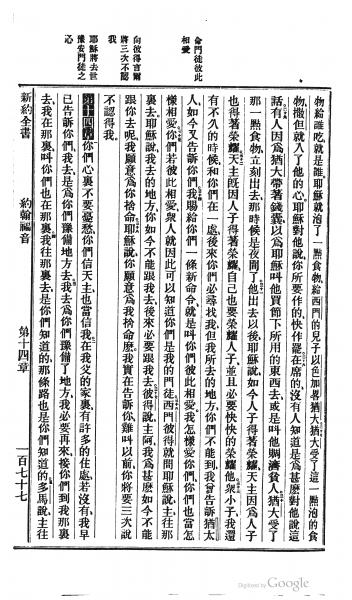 命門徒彼此
相愛
向彼得言爾
將三次不認
我
耶穌將去世
豫安門徒之
心
物給誰吃就是誰耶穌就泡了一點食物給西門的兒子以色加畧猶大猶大受了這一點泡的食
物撒但就入了他的心耶穌對他說你所要作的快作罷在席的沒有人知道是爲甚麽對他說這
話有人因爲猶大帶著錢囊以爲耶穌叫他買節下所用的東西去或是叫他賙濟貧人猶大受了
那一點食物立刻出去那時候是夜間了他出去以後耶穌說如今人子得著榮耀天主因爲人子
也得著榮耀天主旣因人子得著榮耀自己也要榮耀人子並且必要快快的榮耀他衆小子我還
有不久的時候和你們在一處後來你們必尋找我但我所去的地方你們不能到我曾告訴猶太
人如今又告訴你們我賜給你們一條新命令就是叫你們彼此相愛我怎樣愛你們你們也當怎
樣相愛你們若彼此相愛衆人就因此可以知道你們是我的門徒西門彼得就問耶穌說主往那
裏去耶穌說我去的地方你如今不能跟我去後來必要跟我去彼得說主阿我爲甚麽如今不能
跟你去呢我願意爲你捨命耶穌說你願意爲我捨命麽我實在告訴你雞叫以前你將要三次說
不認得我
第十四章你們心裏不要憂愁你們信天主也當信我在我父的家裏有許多的住處若沒有我早
已告訴你們我去是爲你們豫備地方去我去爲你們豫備了地方我必要再來接你們到我那裏
去我在那裏叫你們也在那裏我往那裏去是你們知道的那條路也是你們知道的多馬說主往
新約全書
約翰福音
第十四章
一百七十七
Digitized by Google